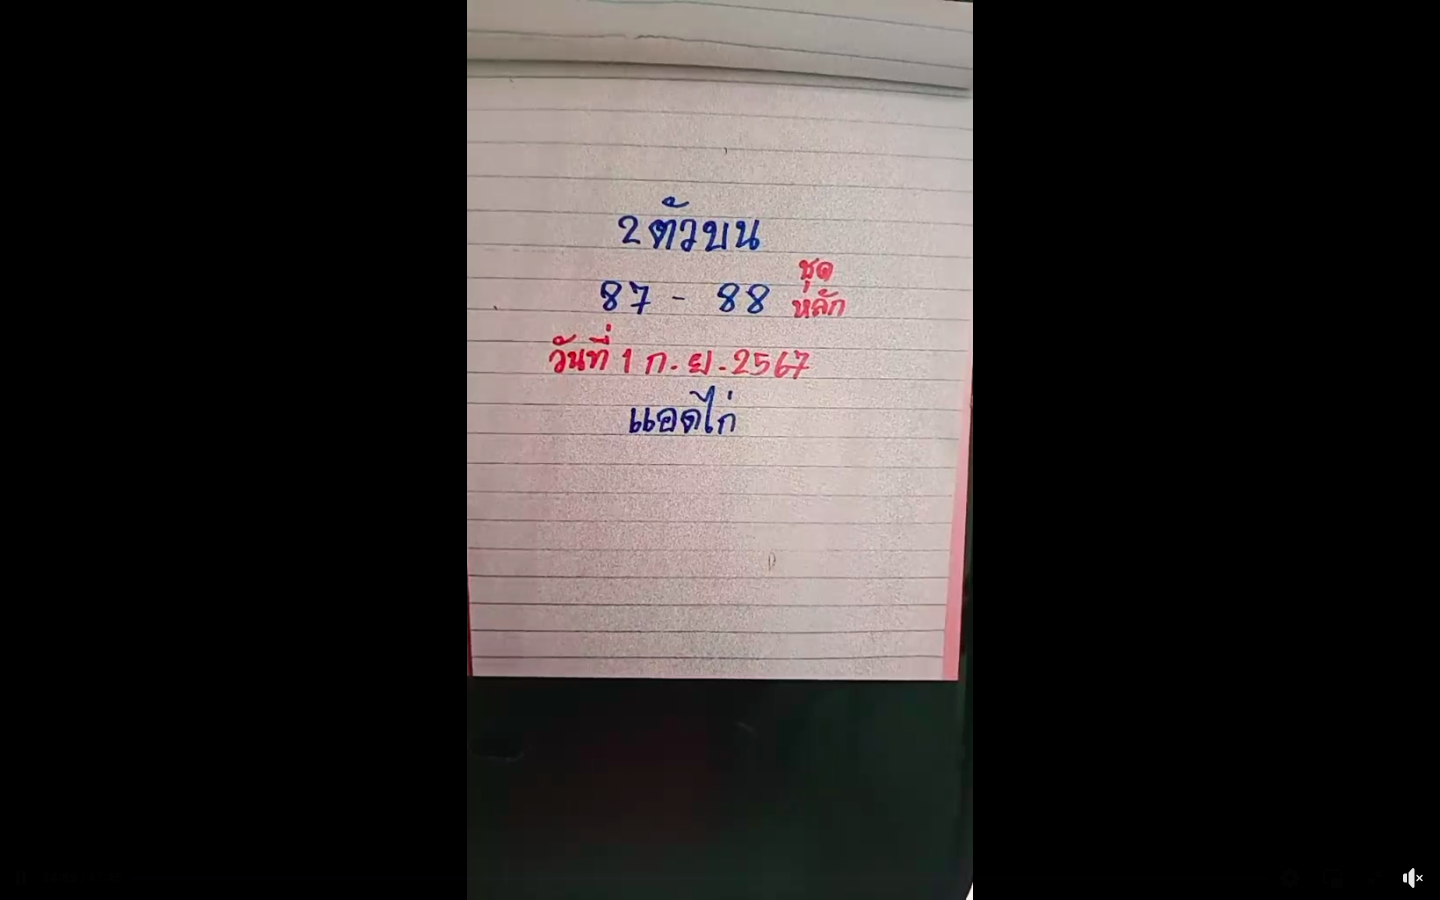 2 ตัวบน
87 - 88 ชุดหลัก
วันที่ 1 ก.ย.2567
แอดไก่